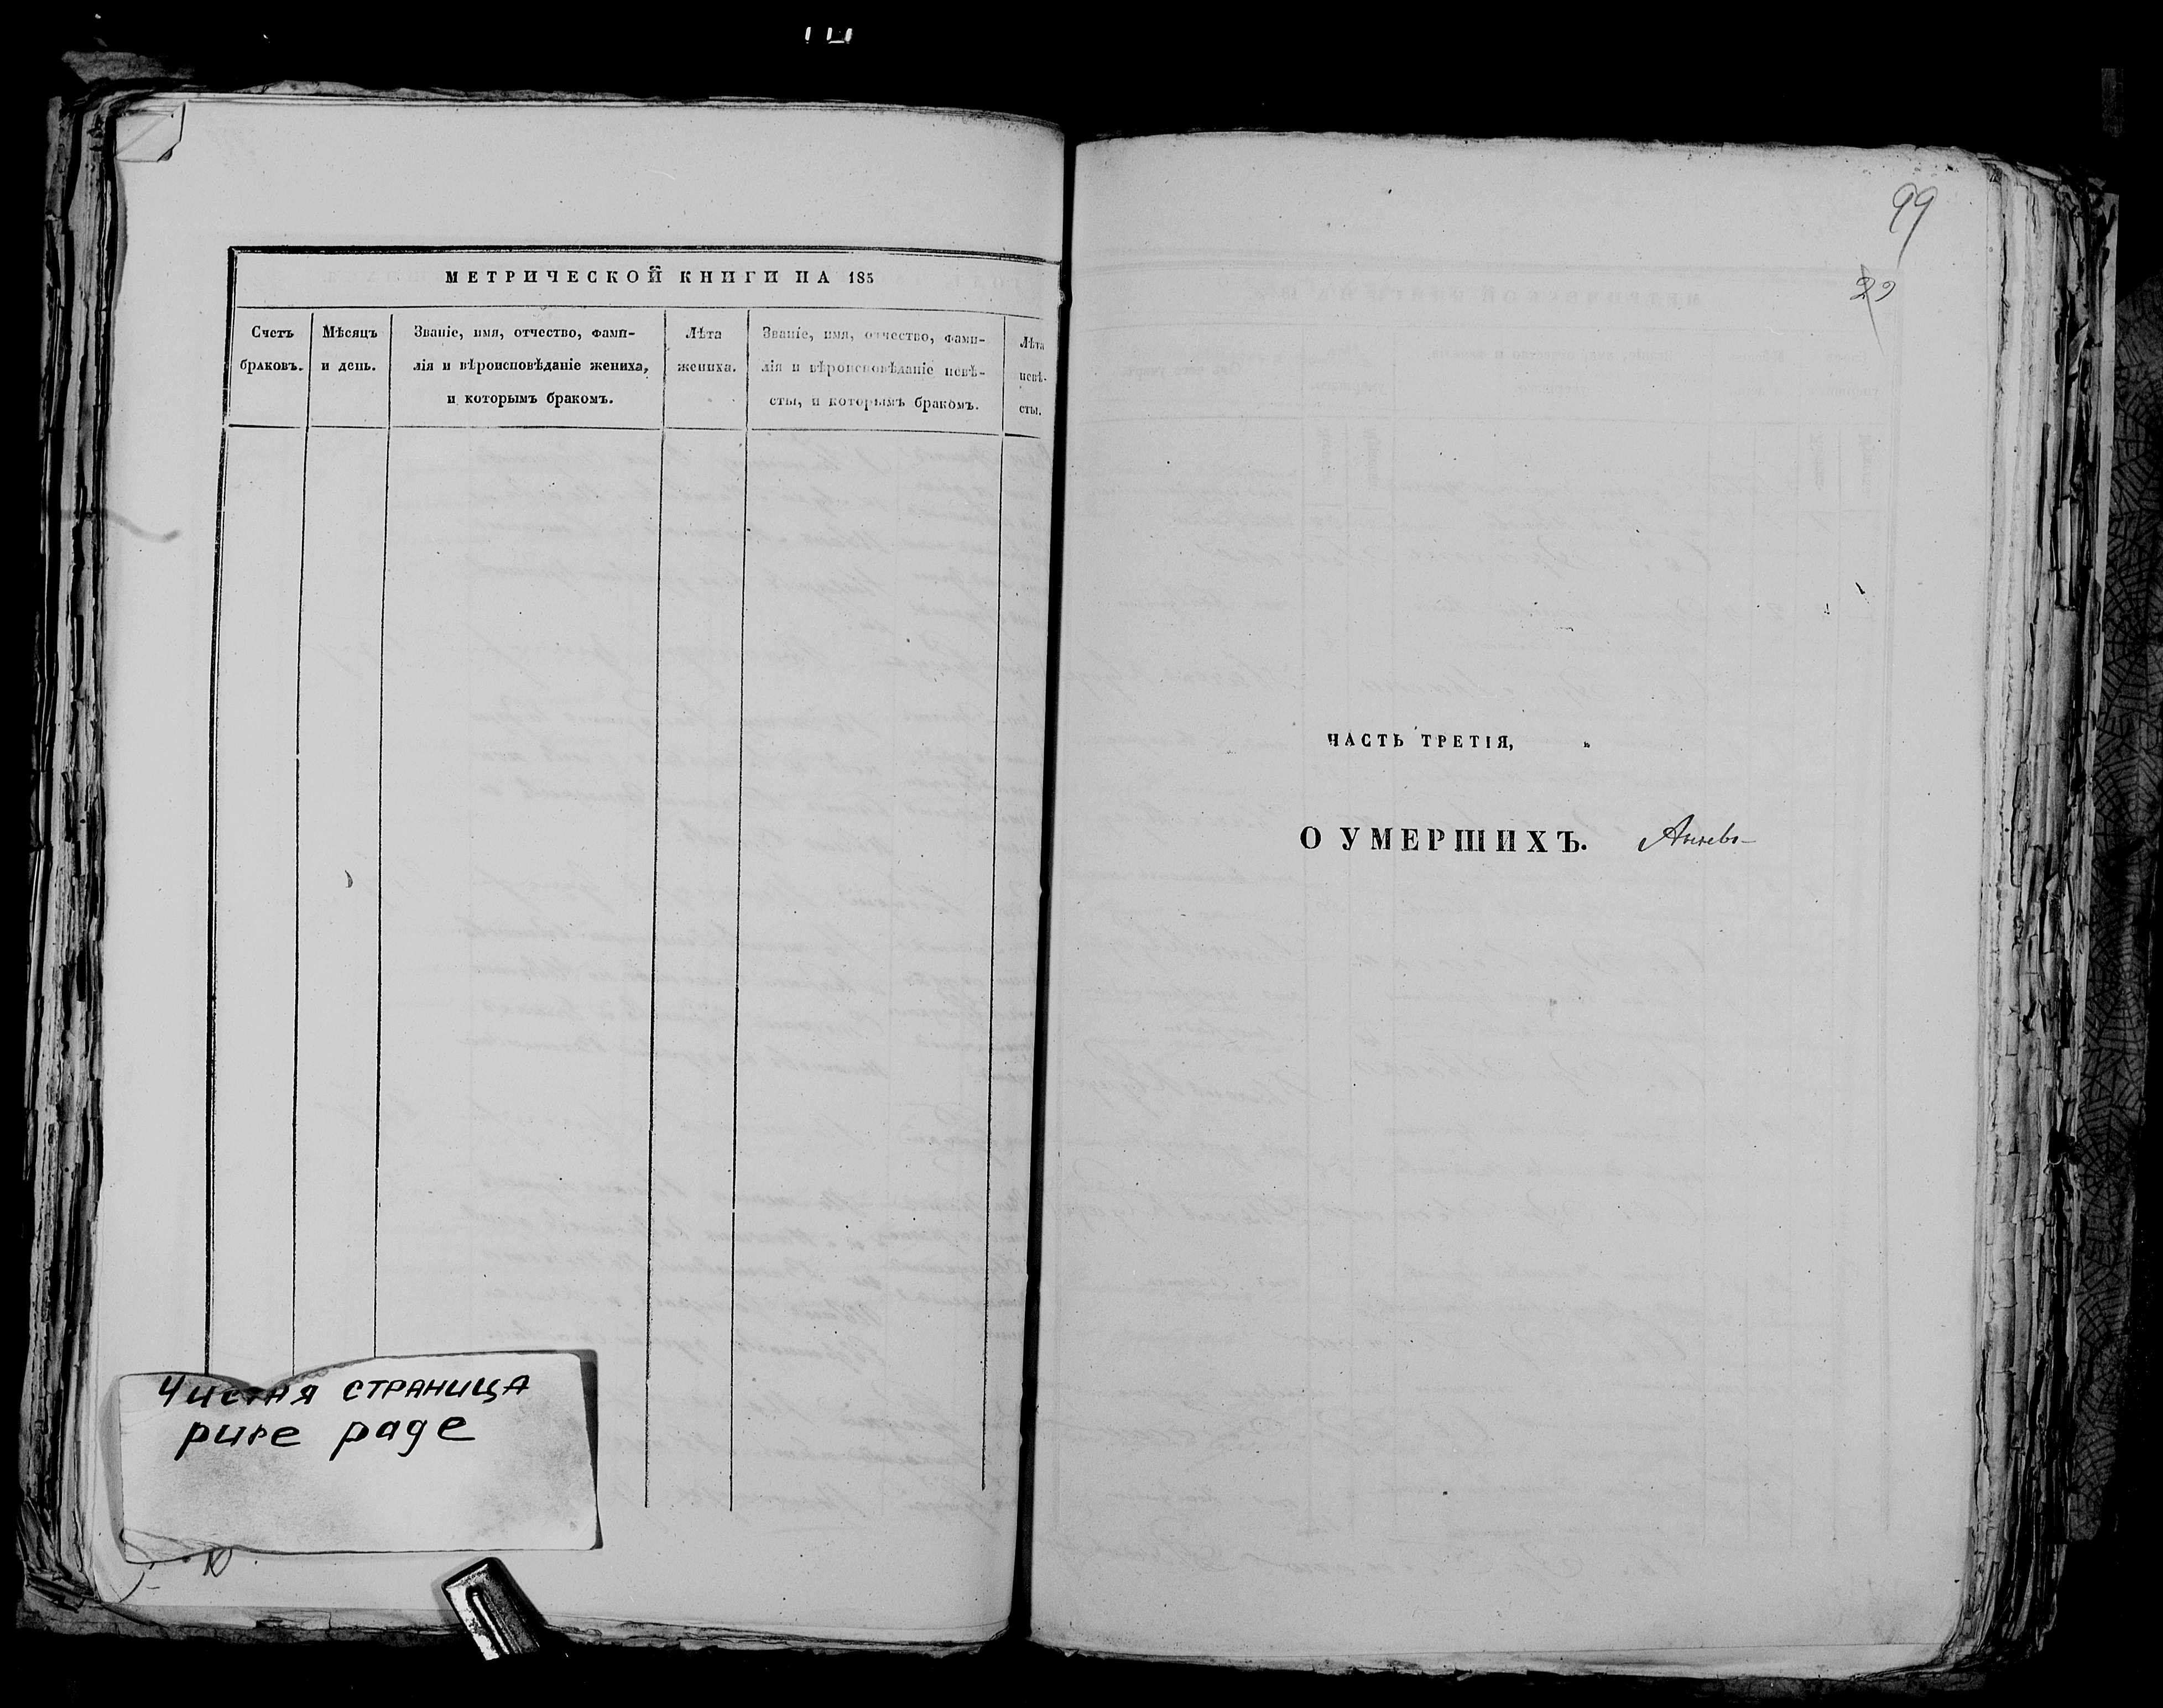 МЕТРИЧЕСКОЙ КНИГИ НА 185
Счетъ
браковъ.
Мѣсяцъ
и день.
Званіе, имя, отчество, фами-
лія и вѣроисповѣданіе жениха,
и которымъ бракомъ.
Лѣта
жениха.
Званіе, имя, отчество, фами-
лія и вѣроисповѣданіе невѣ-
сты, и которымъ бракомъ.
Лѣта
невѣ-
сты.
Чистая страница
pure page
99
ЧАСТЬ ТРЕТІЯ,
О УМЕРШИХЪ.